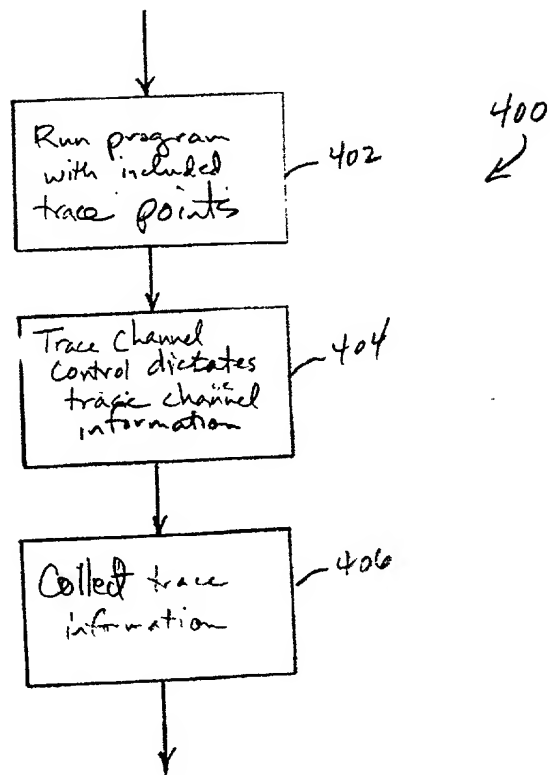 Run program
with included
trace points
402
400
Trace Channel
Control dictates
trace channel
information
404
Collect trace
information
406